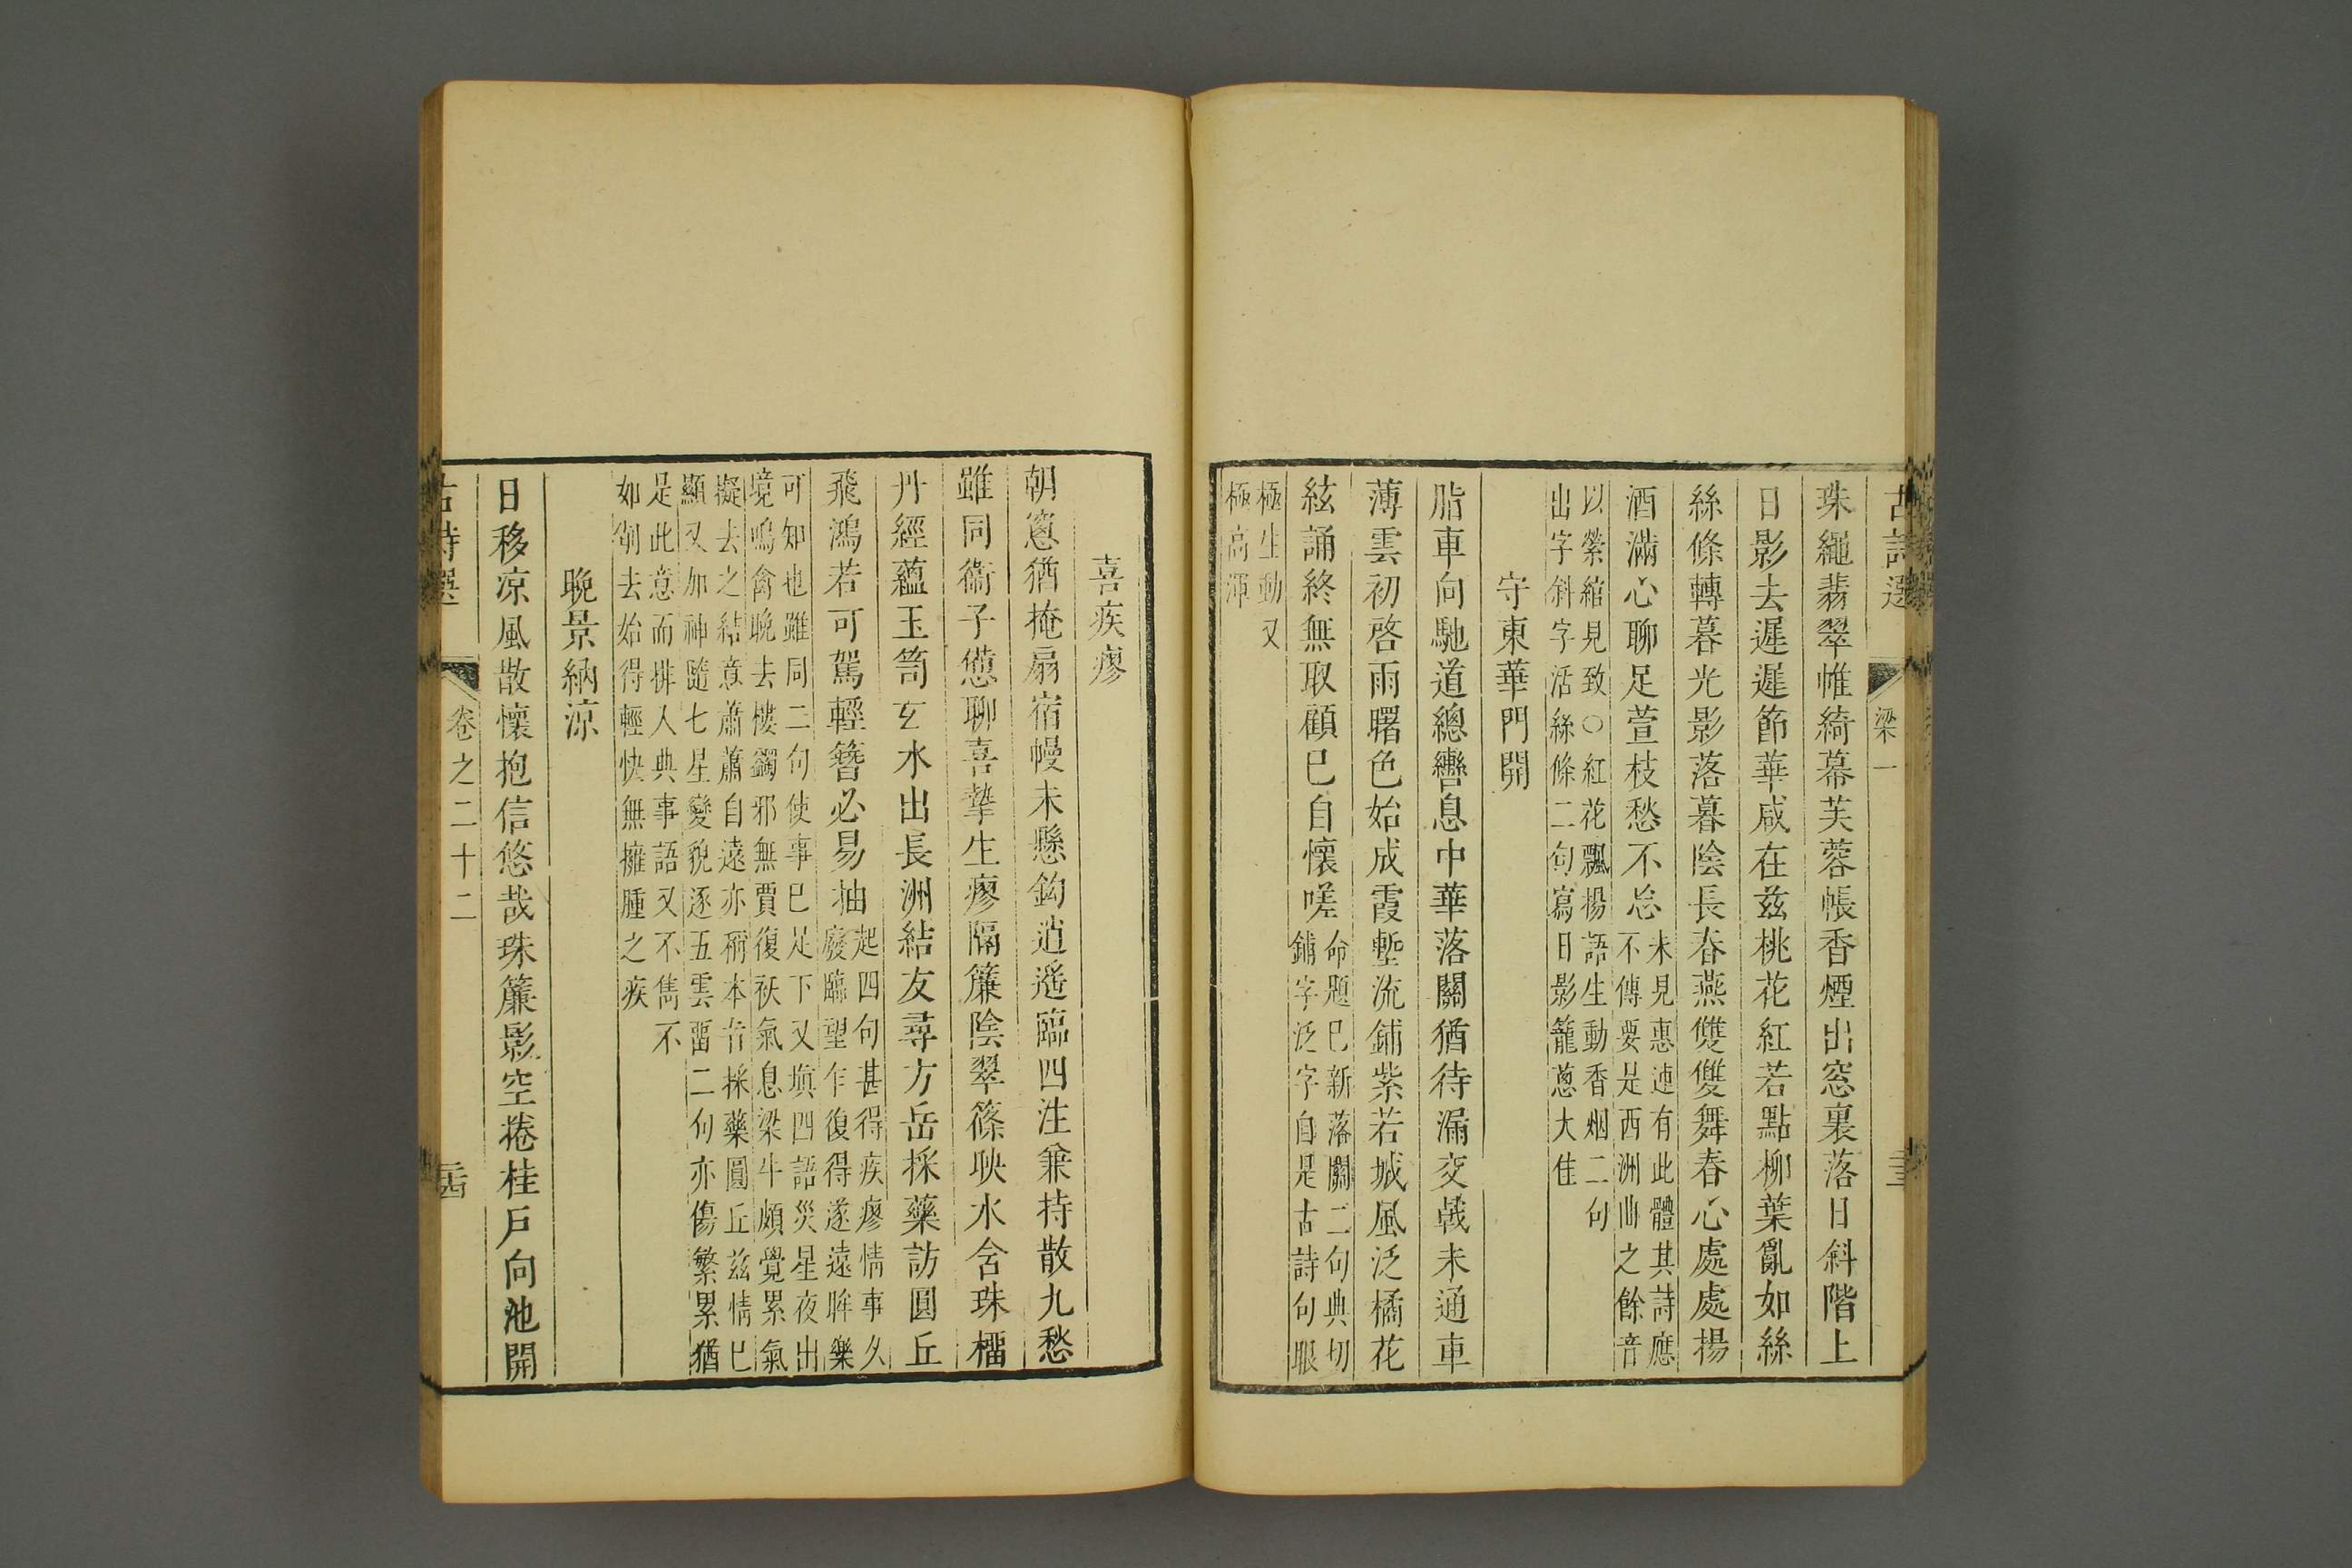 古詩選
梁一
珠繩翡翠帷綺幕芙蓉帳香煙出窓裏落日斜階上
日影去遲遲節華咸在茲桃花紅若點柳葉亂如絲
絲條轉暮光影落暮陰長春燕雙雙舞春心處處揚
酒滿心聊足萱枝愁不忘
未見惠連有此體其詩應
不傳要是西洲曲之餘音
以縈綰見致○紅花飄揚語生動香烟二句
出字斜字活絲條二句寫日影籠蔥大佳
守東華門開
脂車向馳道總轡息中華落關猶待漏交戟未通車
薄雲初啓雨曙色始成霞塹流鋪紫若城風泛橘花
絃誦終無取顧已自懷嗟
命題已新落關二句典切
鋪字泛字自是古詩句眼
極生動又
極高渾
喜疾瘳
朝窻猶掩扇宿幔未懸鉤逍遥臨四注兼持散九愁
雖同衞子憊聊喜摯生瘳隔簾陰翠篠映水含珠榴
丹經蘊玉笥玄水出長洲結友尋方岳採藥訪圓丘
飛鴻若可駕輕簪必易抽
起四句甚得疾瘳情事久
廢臨望乍復得遂遠眸樂
可知也雖同二句使事已足下又填四語災星夜出
境鳴禽晚去樓鐲邪無賈復祅氣息梁牛頗覺累氣
擬去之結意蕭蕭自遠亦稱本旨採藥圓丘茲情已
顯又如神隨七星變貌逐五雲畱二句亦傷繁累猶
是此意而排人典事語又不雋不
如剬去始得輕快無擁腫之疾
晚景納涼
日移涼風散懷抱信悠哉珠簾影空捲桂戶向池開
古詩選
卷之二十二